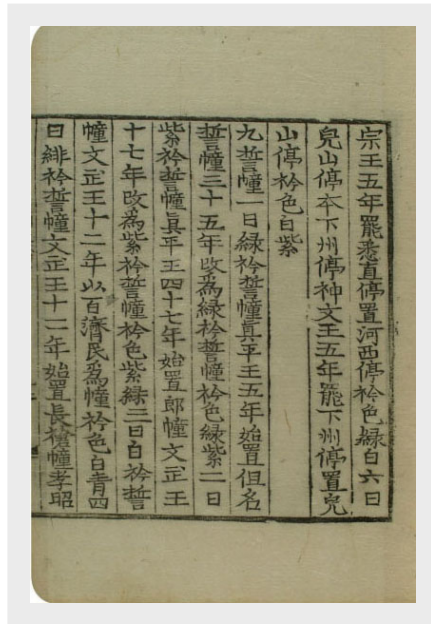 宗王五年罷悉直停置河西停衿色緑白六曰
皃山停本下州停神文王五年罷下州停置皃
山停衿色白紫
九誓幢一曰緑衿誓幢真平王五年始置但名
誓幢三十五年改爲緑衿誓幢衿色緑紫二曰
紫衿誓幢眞平王四十七年始置郎幢文正王
十七年改爲紫衿誓幢衿色紫緑三曰白衿誓
幢文正王十二年以百濟民爲幢衿色白青四
曰緋衿誓幢文正王十二年始置長槍幢孝昭